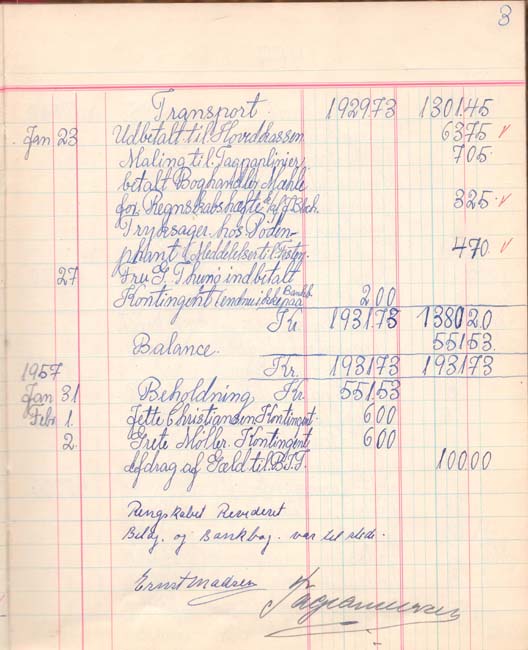 3
Transport. 1929.73 1301.45
Jan 23 Udbetalt til Hovedkassen 63.75
Maling til Tagpaplinjer 7.05
betalt Boghandler Mæhle
for Regnskabshæfte 3.25
Tryksager hos
Meddelelser til 4.70
27 Fru G. Thuring indbetalt
Kontingent (endnu ikke paa Bankb. 2.00
Kr 1931.73 1380.20
Balance. 551.53
Kr. 1931.73 1931.73
1957
Jan 31 Beholdning Kr. 551.53
Febr 1. Jette Christiansen Kontingent 6.00
2. Grete Möller. Kontingent 6.00
Afdrag af Gæld til B.T.F. 100.00
Rengskabet Revideret
Beldg. og Bankbog. var til stede.
Ernst Madsen